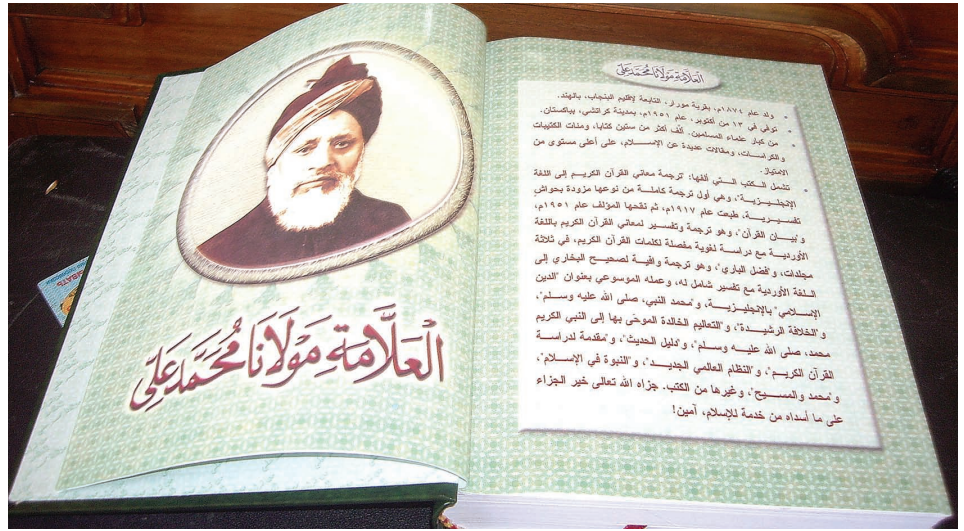 العَلَّامَة مَوْلَانَا مُحَمَّد عَلِّي
العَلَّامَة مَوْلَانَا مُحَمَّد عَلِّي
• ولد عام ١٨٧٤م، بقرية مورار، التابعة لإقليم البنجاب، بالهند.
• توفي في ١٣ من أكتوبر، عام ١٩٥١م، بمدينة كراتشي، بباكستان.
• من كبار علماء المسلمين. ألف أكثر من ستين كتابا، ومئات الكتيبات
والكراسات، ومقالات عديدة عن الإسلام، على أعلى مستوى من
الامتياز.
• تشمل الكتب التي ألفها: ترجمة معاني القرآن الكريم إلى اللغة
الإنجليزية"، وهي أول ترجمة كاملة من نوعها مزودة بحواش
تفسيرية، طبعت عام ١٩١٧م، ثم نقحها المؤلف عام ١٩٥١م،
و"بيان القرآن"، وهو ترجمة وتفسير لمعاني القرآن الكريم باللغة
الأوردية مع دراسة لغوية مفصلة لكلمات القرآن الكريم، في ثلاثة
مجلدات، و"فضل الباري"، وهو ترجمة وافية لصحيح البخاري إلى
اللغة الأوردية مع تفسير شامل له، وعمله الموسوعي بعنوان "الدين
الإسلامي" بالإنجليزية، و"محمد النبي، صلى الله عليه وسلم"،
و"الخلافة الرشيدة"، و"التعاليم الخالدة الموحَى بها إلى النبي الكريم
محمد، صلى الله عليه وسلم"، و"دليل الحديث"، و"مقدمة لدراسة
القرآن الكريم"، و"النظام العالمي الجديد"، و"النبوة في الإسلام"،
و"محمد والمسيح"، وغيرها من الكتب. جزاه الله تعالى خير الجزاء
على ما أسداه من خدمة للإسلام، آمين!